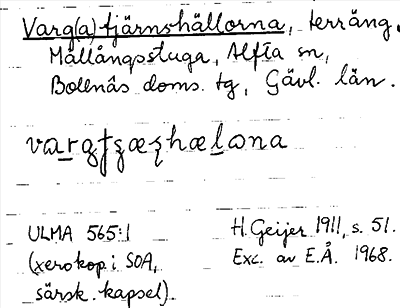 Varg(a)tjärnshällorna, terräng.
Mållångsstuga, Alfta sn,
Bollnäs doms. tg, Gävl. län.
ULMA 565:1
(xerokop i SOA,
särsk. kapsel).
H. Geijer 1911, s. 51.
Exc. av E.Å. 1968.